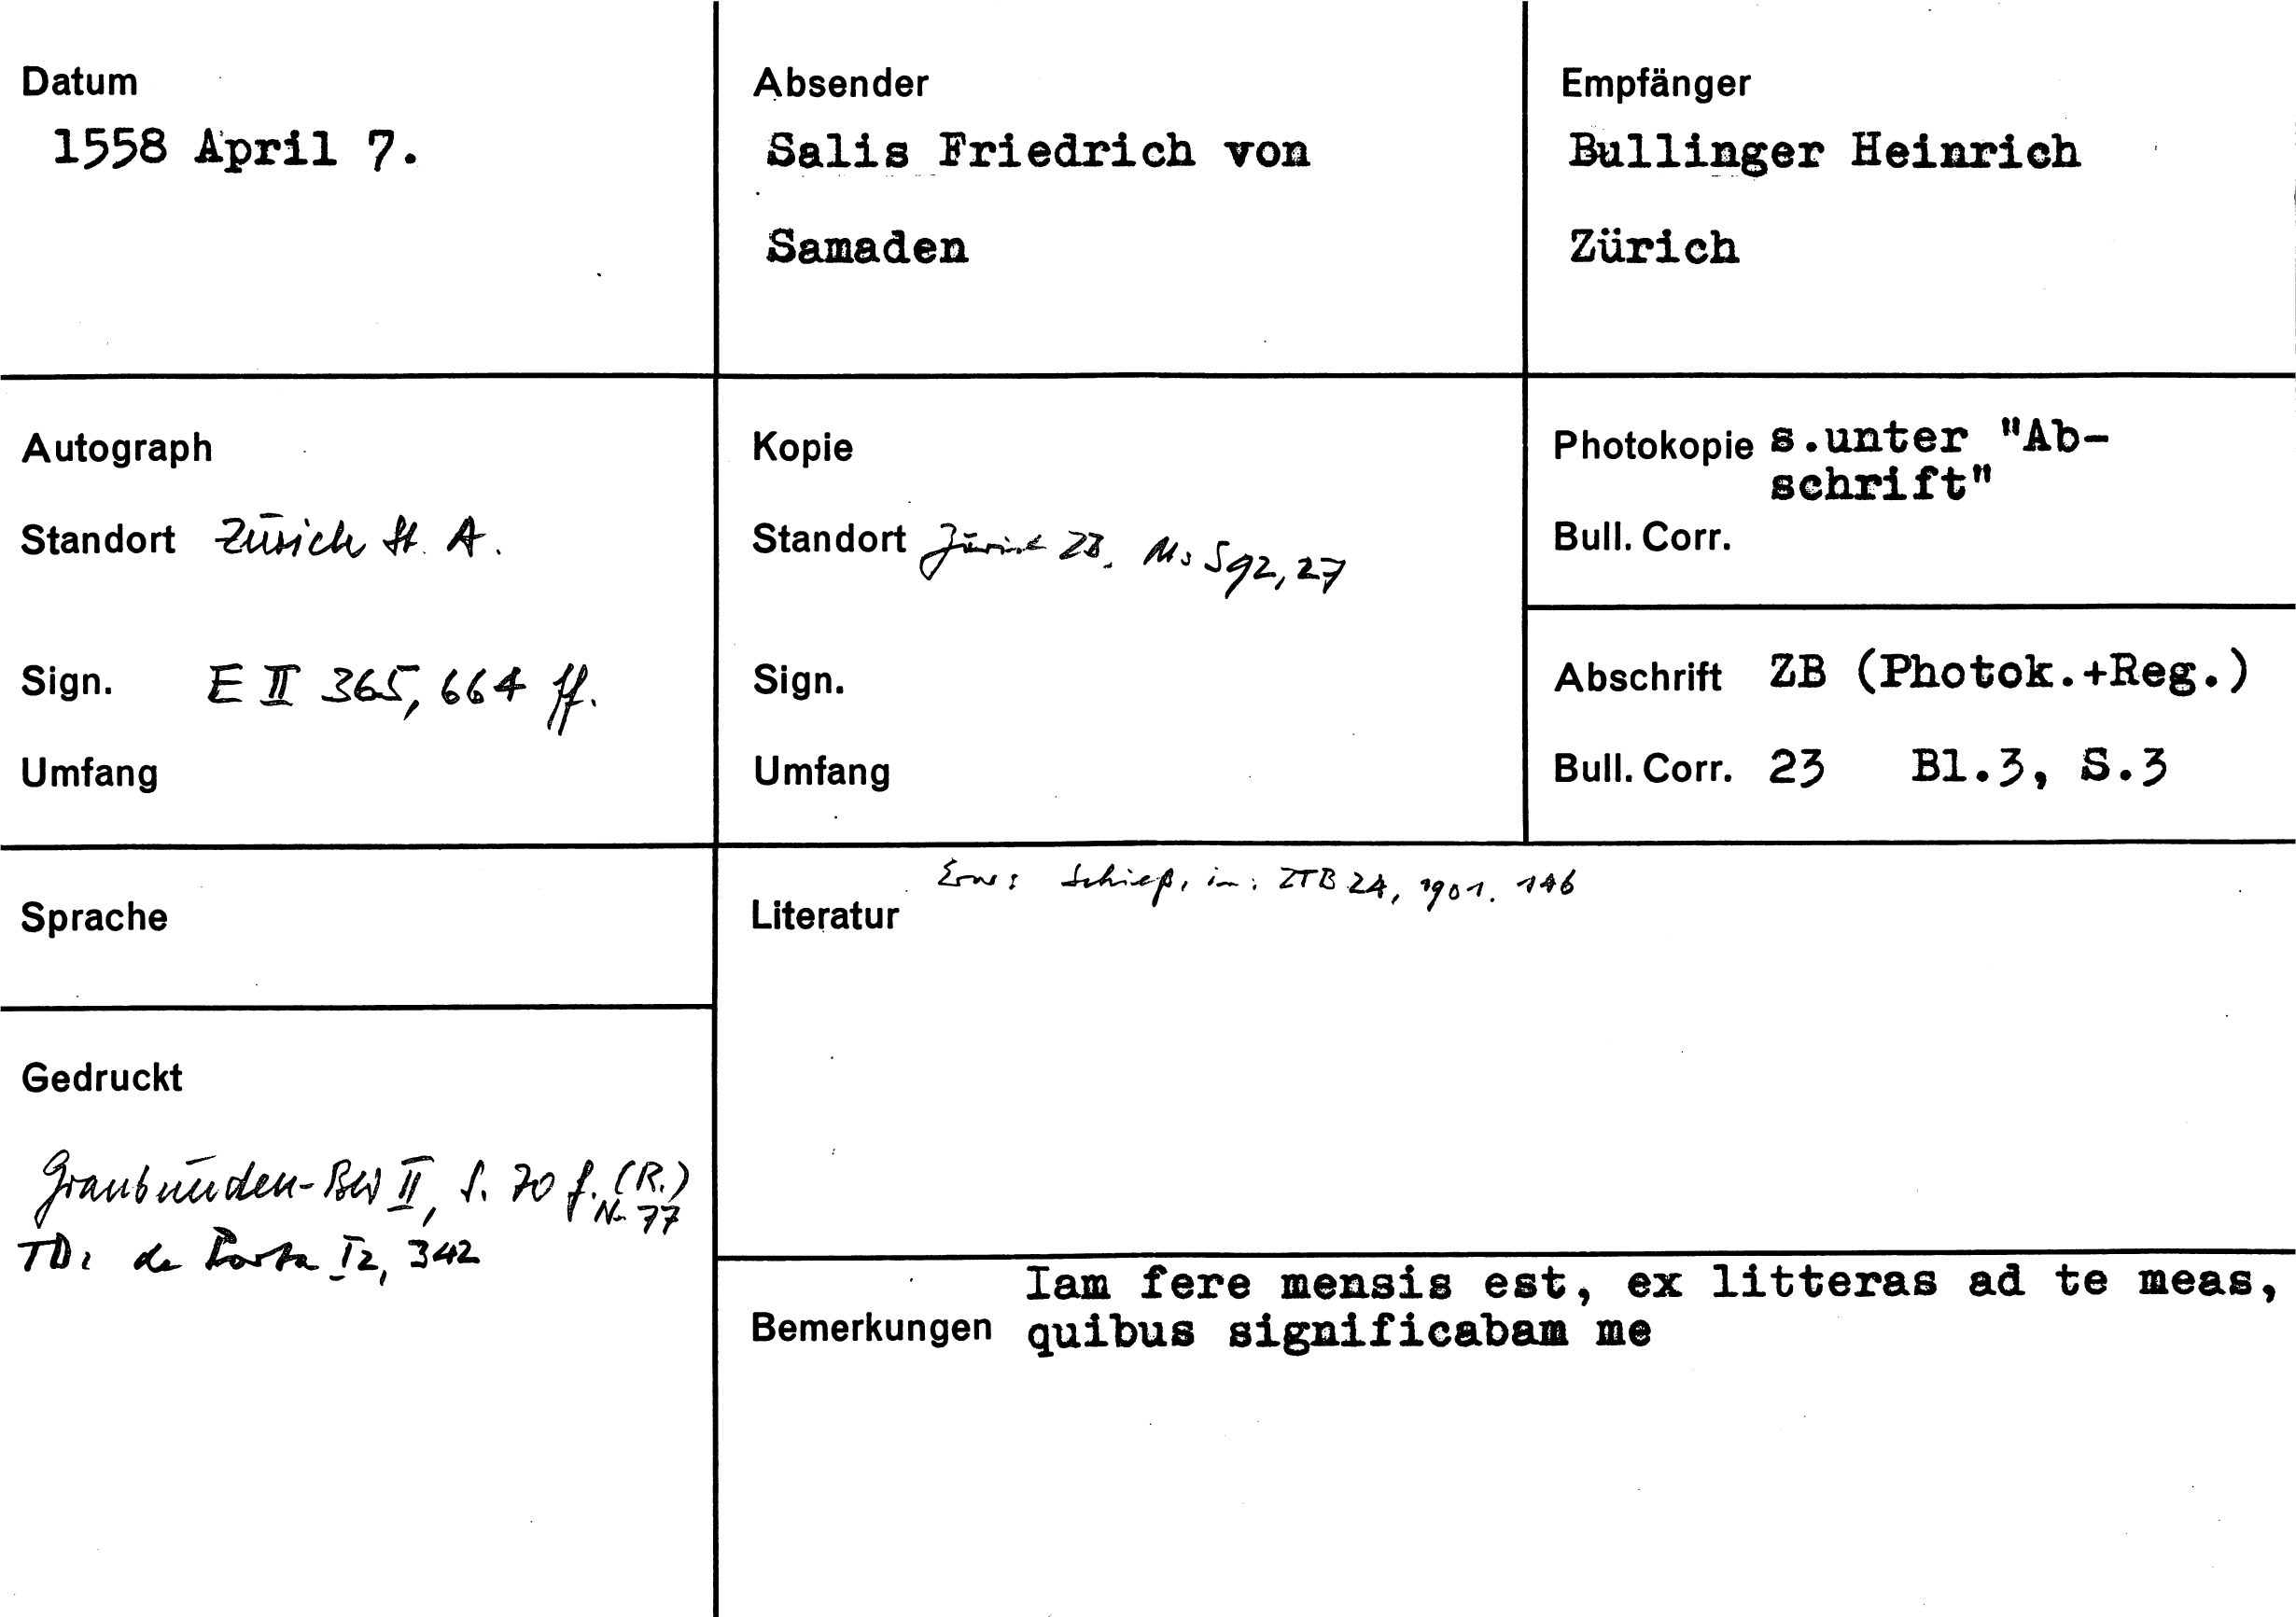 Datum
1558 April 7.
Absender
Salis Friedrich von
Samaden
Empfänger
Bullinger Heinrich
Zürich
Autograph
Standort Zürich St. A.
Sign. E II 365, 664 ff.
Umfang
Kopie
Standort Zürich ZB. Ms S 92, 27
Sign.
Umfang
Photokopie s.unter "Ab-
schrift"
Bull. Corr.
Abschrift ZB (Photok.+Reg.)
Bull. Corr. 23 Bl.3, S.3
Sprache
Gedruckt
Graubünden-BW II, S. 70 f. (R.)
Nr. 77
TD: de Porta I2, 342
Erw: Schieß, in: ZTB 24, 1901. 146
Literatur
Iam fere mensis est, ex litteras ad te meas,
Bemerkungen quibus significabam me